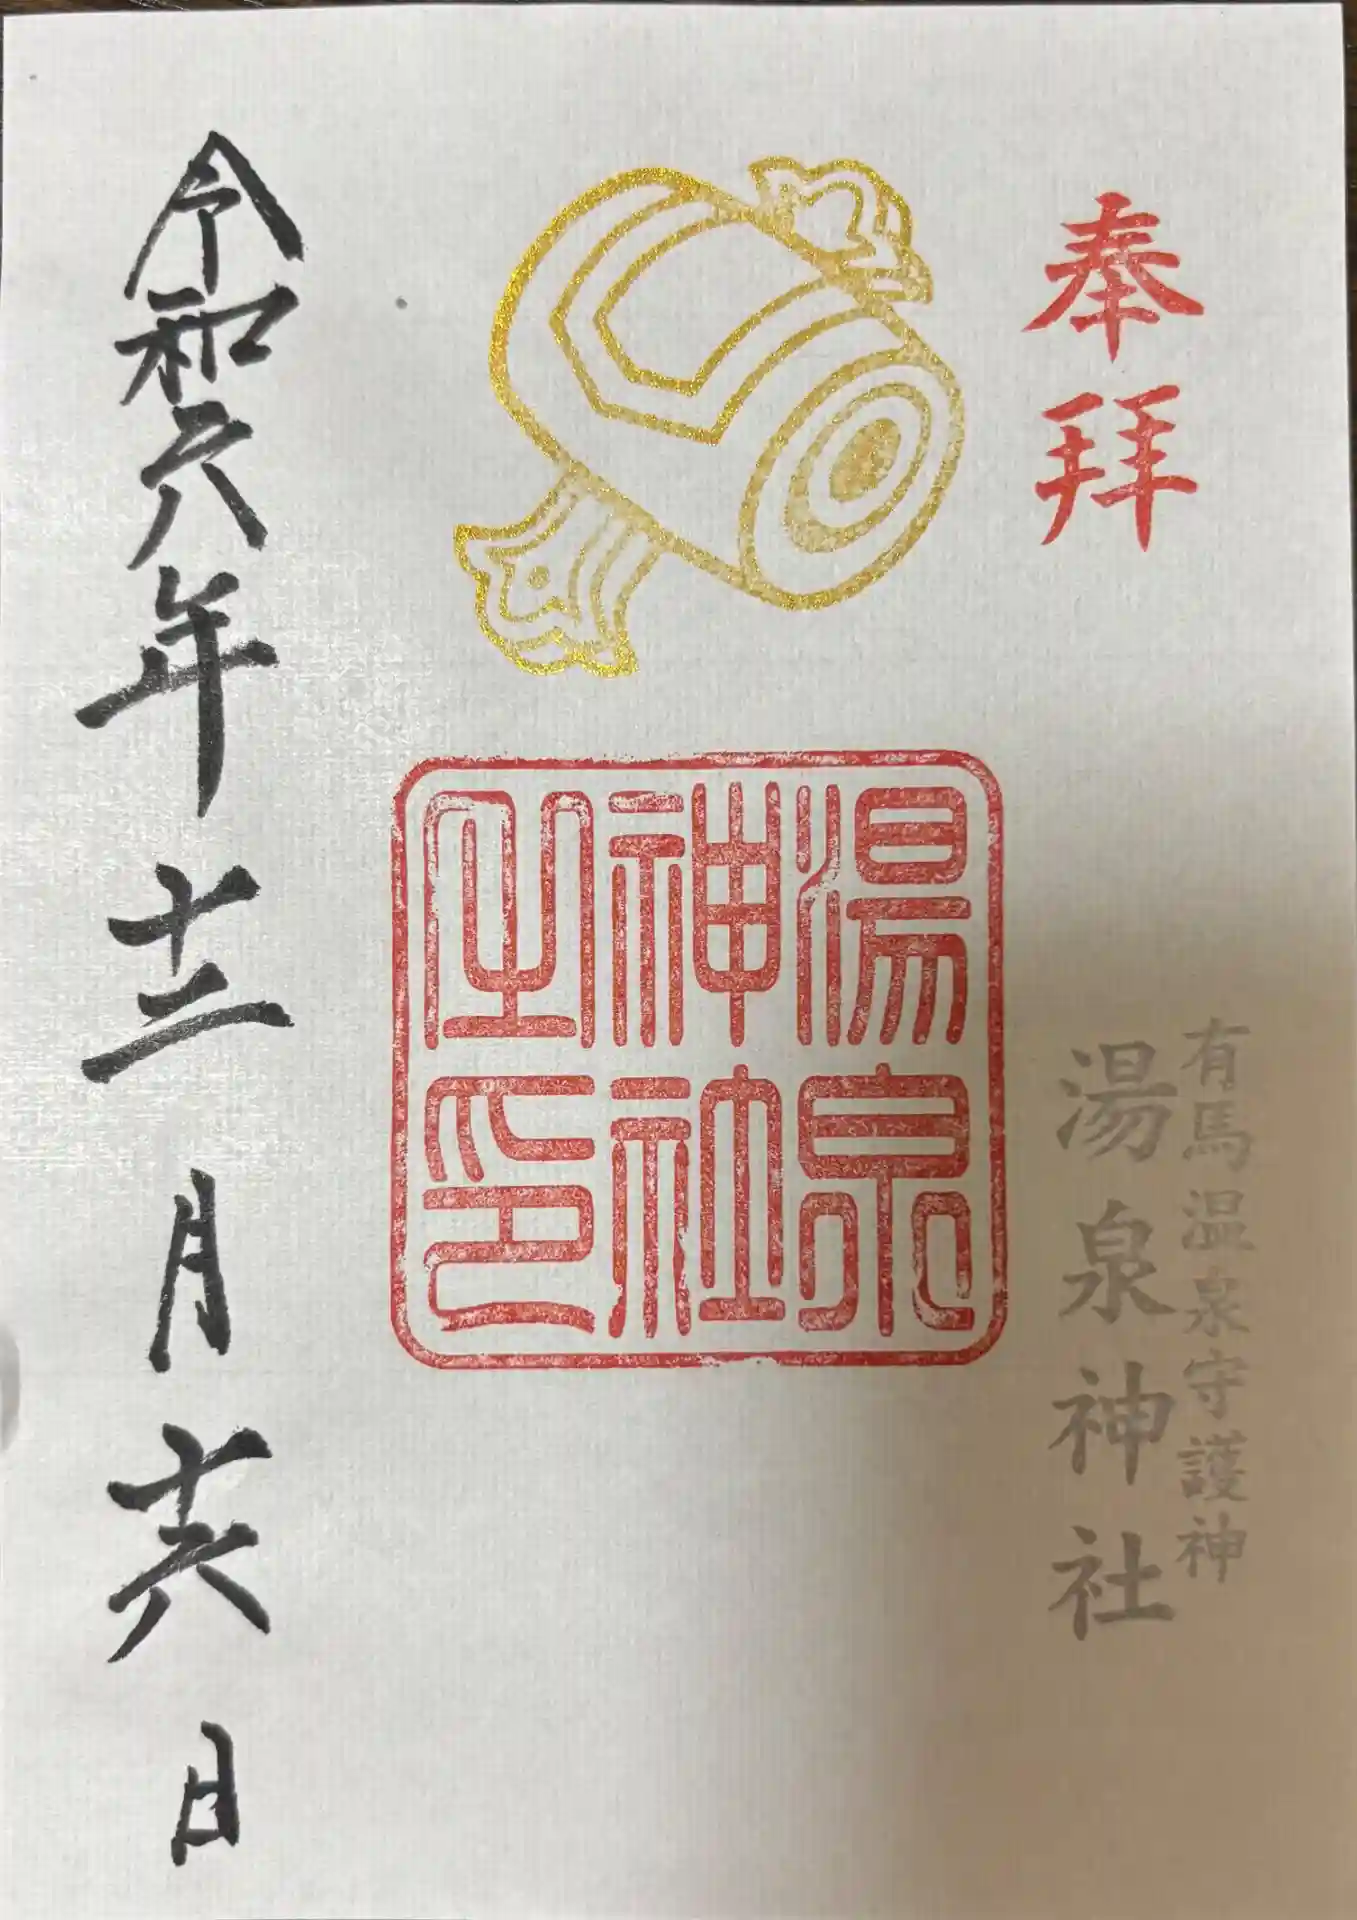 奉拝
有馬温泉守護神
湯泉神社
湯泉
神社
之印
令和六年十二月十六日